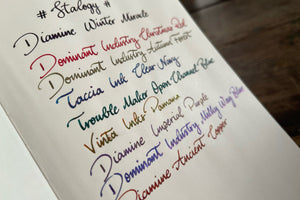 # Stalogy #
Diamine Winter Miracle
Dominant Industry Christmas Red
Dominant Industry Autumn Forest
Taccia Ink Clear Navy
Trouble Maker Open Channel Blue
Vinta Inks Panama
Diamine Imperial Purple
Dominant Industry Milky Way Blue
Diamine Ancient Copper